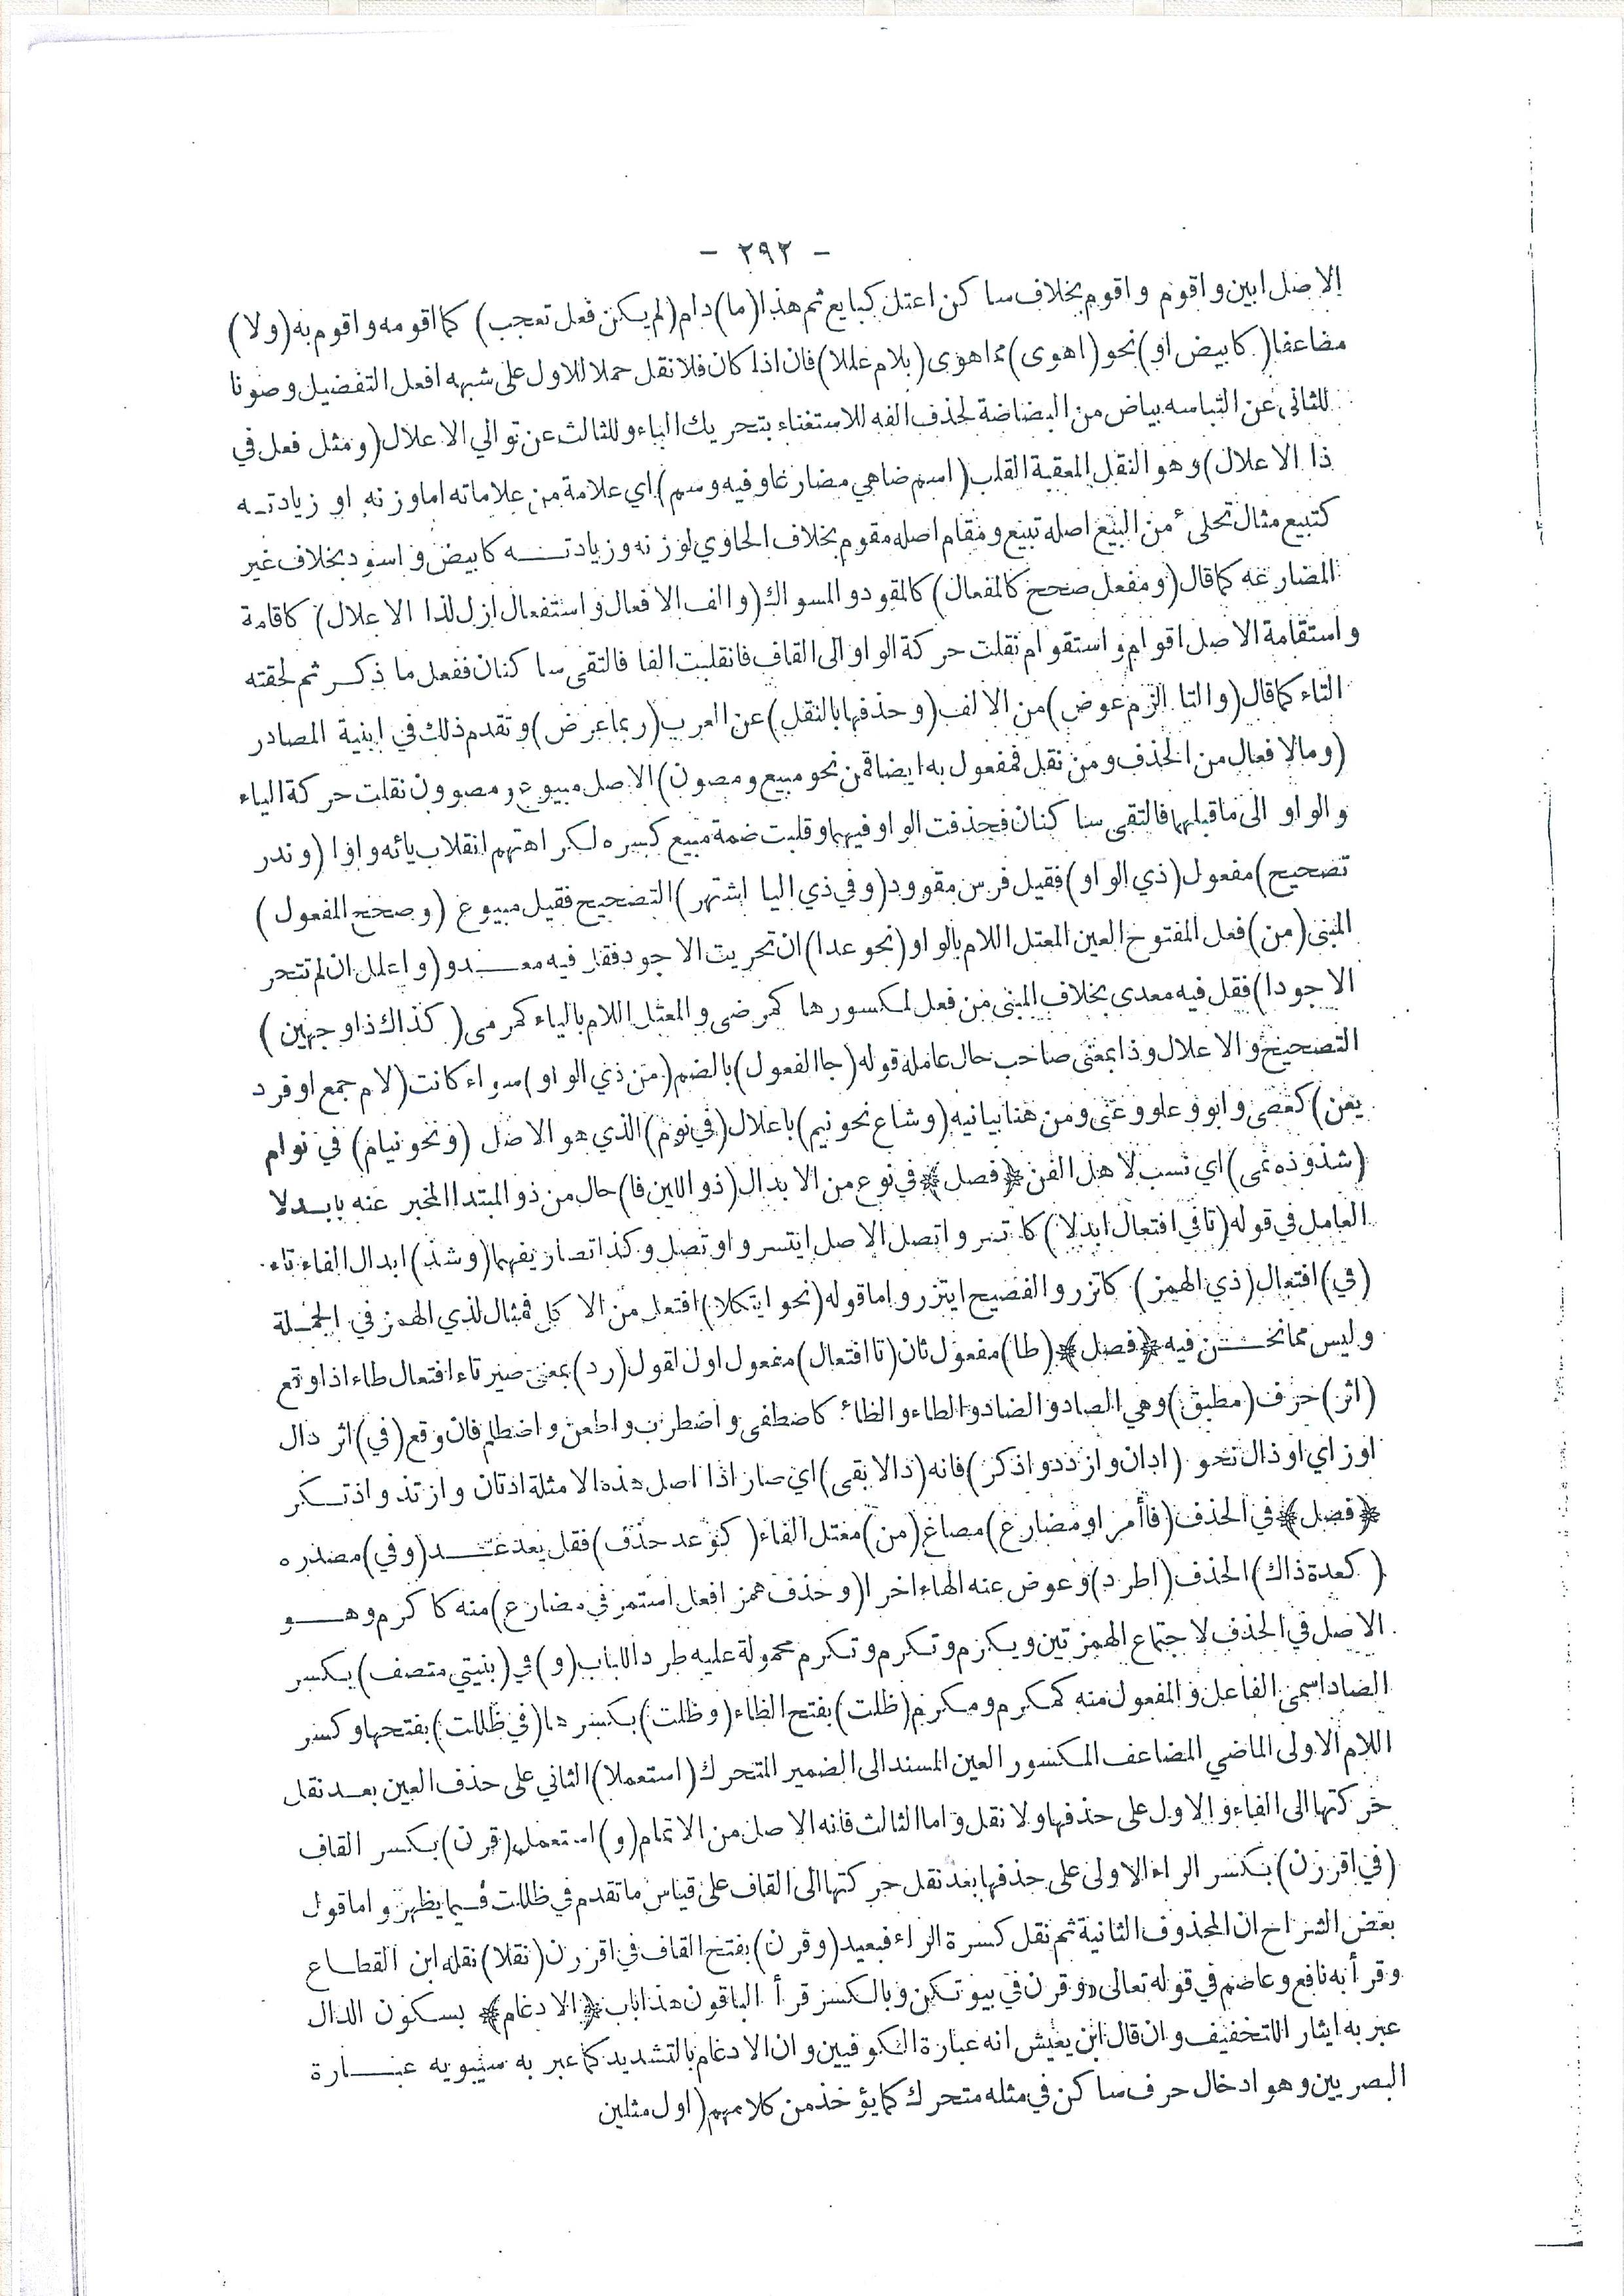 - ٢٩٢ -
الاصل ابين واقوم واقوم بخلاف ساكن اعتل كبايع ثم هذا (ما) دام (لم يكن فعل تعجب) كما اقومه واقوم به (ولا)
مضاعفا (كابيض او) نحو (اهوى) مما هوى (بلام عللا) فان اذا كان فلا نقل حملا للاول على شبهه افعل التفضيل وصونا
للثانى عن التباسه بباض من البضاضة لحذف الفه للاستغناء بتحريك الباء وللثالث عن توالي الاعلال (ومثل فعل في
ذا الاعلال) وهو النقل المعقبة القلب (اسم ضاهي مضارعا وفيه وسم) اي علامة من علاماته اما وزنه او زيادته
كتبيع مثال تحلىء من البيع اصله تبيع ومقام اصله مقوم بخلاف الحاوي لوزنه وزيادته كابيض واسود بخلاف غير
المضارعه كما قال (ومفعل صحح كالمفعال) كالمقود والمسواك (والف الافعال واستفعال ازل لذا الاعلال) كاقامة
واستقامة الاصل اقوام واستقوام نقلت حركة الواو الى القاف فانقلبت الفا فالتقى ساكنان ففعل ما ذكر ثم لحقته
التاء كما قال (والتا الزم عوض) من الالف (وحذفها بالنقل) عن العرب (ربما عرض) وتقدم ذلك في ابنية المصادر
(وما لافعال من الحذف ومن نقل فمفعول به ايضا قمن نحو مبيع ومصون) الاصل مبيوع ومصوون نقلت حركة الياء
والواو الى ما قبلهما فالتقى ساكنان فحذفت الواو فيهما وقلبت ضمة مبيع كسره لكراهتهم انقلاب يائه واوا (وندر
تصحيح) مفعول (ذي الواو) فقيل فرس مقوود (وفي ذي اليا اشتهر) التصحيح فقيل مبيوع (وصحح المفعول)
المبنى (من) فعل المفتوح العين المعتل اللام بالواو (نحو عدا) ان تحريت الاجود فقل فيه معدو (واعلل ان لم تتحر
الاجودا) فقل فيه معدى بخلاف المبنى من فعل لمكسورها كمرضى والمعتل اللام بالياء كمرمى (كذاك ذا وجهين)
التصحيح والاعلال وذا بمعنى صاحب حال عامله قوله (جا الفعول) بالضم (من ذي الواو) سواء كانت (لام جمع او فرد
يعن) كعصى وابو وعلو وعتى ومن هنا بيانيه (وشاع نحو نيم) باعلال (في نوم) الذي هو الاصل (ونحو نيام) في نوام
(شذوذه نمى) اي نسب لاهل الفن ﴿فصل﴾ في نوع من الابدال (ذو اللين فا) حال من ذو المبتدا المخبر عنه بابدلا
العامل في قوله (تا في افتعال ابدلا) كاتسر واتصل الاصل ايتسر واوتصل وكذا تصاريفهما (وشذ) ابدال الفاء تاء
(في) افتعال (ذي الهمز) كاتزر والفصيح ايتزر واما قوله (نحو ايتكلا) افتعل من الاكل فمثال لذي الهمز في الجملة
وليس مما نحن فيه ﴿فصل﴾ (طا) مفعول ثان (تا افتعال) مفعول اول لقول (رد) بمعنى صير تاء افتعال طاء اذا وقع
(اثر) حرف (مطبق) وهي الصاد والضاد والطاء والظاء كاصطفى واضطرب واطعن واضطلم فان وقع (في) اثر دال
او زاي او ذال نحو (ادان وازدد واذكر) فانه (دالا بقى) اي صار اذا اصل هذه الامثلة ادتان وازتد واذتكر
﴿فصل﴾ في الحذف (فا أمر او مضارع) مصاغ (من) معتل الفاء (كوعد حذف) فقل يعد عد (وفي) مصدره
(كعدة ذاك) الحذف (اطرد) وعوض عنه الهاء اخرا (وحذف همز افعل استمر في مضارع) منه كاكرم وهو
الاصل في الحذف لاجتماع الهمزتين ويكرم وتكرم وتكرم محمولة عليه طردا للباب (و) في (بنيتي متصف) بكسر
الصاد اسمى الفاعل والمفعول منه كمكرم ومكرم (ظلت) بفتح الظاء (وظلت) بكسرها (في ظللت) بفتحها وكسر
اللام الاولى الماضي المضاعف المكسور العين المسند الى الضمير المتحرك (استعملا) الثاني على حذف العين بعد نقل
حركتها الى الفاء والاول على حذفها ولا نقل واما الثالث فانه الاصل من الاتمام (و) استعمل (قرن) بكسر القاف
(في اقررن) بكسر الراء الاولى على حذفها بعد نقل حركتها الى القاف على قياس ما تقدم في ظللت فيما يظهر واما قول
بعض الشراح ان المحذوف الثانية ثم نقل كسرة الراء فبعيد (وقرن) بفتح القاف في اقررن (نقلا) نقله ابن القطاع
وقرأ به نافع وعاصم في قوله تعالى «وقرن في بيوتكن وبالكسر قرأ الباقون هذا باب ﴿الادغام﴾ بسكون الدال
عبر به ايثار للتخفيف وان قال ابن يعيش انه عبارة الكوفيين وان الادغام بالتشديد كما عبر به سيبويه عبارة
البصريين وهو ادخال حرف ساكن في مثله متحرك كما يؤخذ من كلامهم (اول مثلين